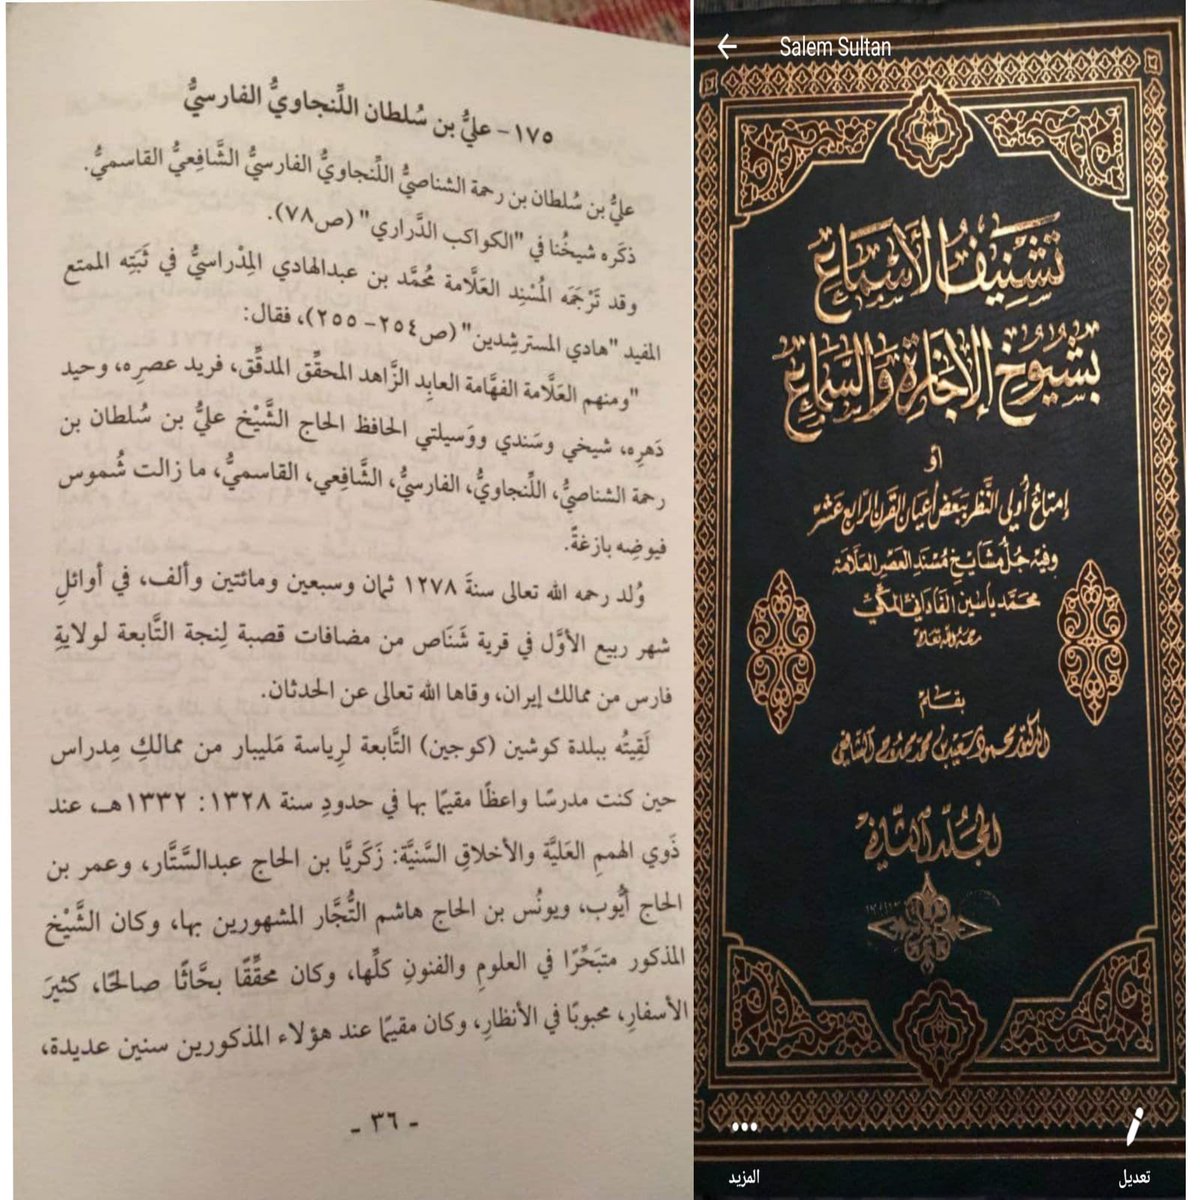 ١٧٥- عليُّ بن سُلطان اللِّنجاويُّ الفارسيُّ
عليُّ بن سُلطان بن رحمة الشناصيُّ اللِّنجاويُّ الفارسيُّ الشَّافِعيُّ القاسميُّ.
ذكَره شيخُنا في "الكواكب الدَّراري" (ص٧٨).
وقد تَرْجَمَه المُسْنِد العَلَّامة مُحمَّد بن عبدالهادي المِدْراسيُّ في ثَبَتِه الممتع
المفيد "هادي المسترشِدين" (ص٢٥٤- ٢٥٥)، فقال:
"ومنهم العَلَّامة الفهَّامة العابِد الزَّاهد المحقِّق المدقِّق، فريد عصرِه، وحيد
دَهرِه، شيخي وسَندي ووَسيلتي الحافظ الحاج الشَّيْخ عليُّ بن سُلطان بن
رحمة الشناصيُّ، اللِّنجاويُّ، الفارسيُّ، الشَّافِعي، القاسميُّ، ما زالت شُموس
فيوضِه بازغةً.
وُلد رحمه الله تعالى سنةَ ١٢٧٨ ثمان وسبعين ومائتين وألف، في أوائلِ
شهر ربيع الأوَّل في قرية شَنَاص من مضافات قصبة لِنجة التَّابعة لولايةِ
فارس من ممالك إيران، وقاها الله تعالى عن الحدثان.
لَقِيتُه ببلدة كوشين (كوجين) التَّابعة لرِياسة مَليبار من ممالكِ مِدراس
حين كنت مدرسًا واعظًا مقيمًا بها في حدودِ سنة ١٣٢٨: ١٣٣٢هـ، عند
ذَوي الهممِ العَليَّة والأخلاقِ السَّنيَّة: زَكَريَّا بن الحاج عبدالسَّتَّار، وعمر بن
الحاج أيُّوب، ويونُس بن الحاج هاشم التُّجَّار المشهورين بها، وكان الشَّيْخ
المذكور متبَحِّرًا في العلومِ والفنونِ كلِّها، وكان محقِّقًا بحَّاثًا صالحًا، كثيرَ
الأسفارِ، محبوبًا في الأنظارِ، وكان مقيمًا عند هؤلاء المذكورين سنين عديدة،
- ٣٦ -
Salem Sultan
تَشْنِيفُ الأَسْمَاعِ
بشُيُوخِ الإِجَازَةِ وَالسَّمَاعِ
أو
إمتاعُ أُولي النَّظر ببَعض أعيان القرن الرابع عشر
وفيه جُلُّ مشايخ مُسْند العصر العلّامة
محمّد ياسين الفاداني المكّي
رحمه الله تعالى
بقلم
الدكتور محمود سعيد بن محمد ممدوح الشافعي
المجلّد الثاني
المزيد
تعديل